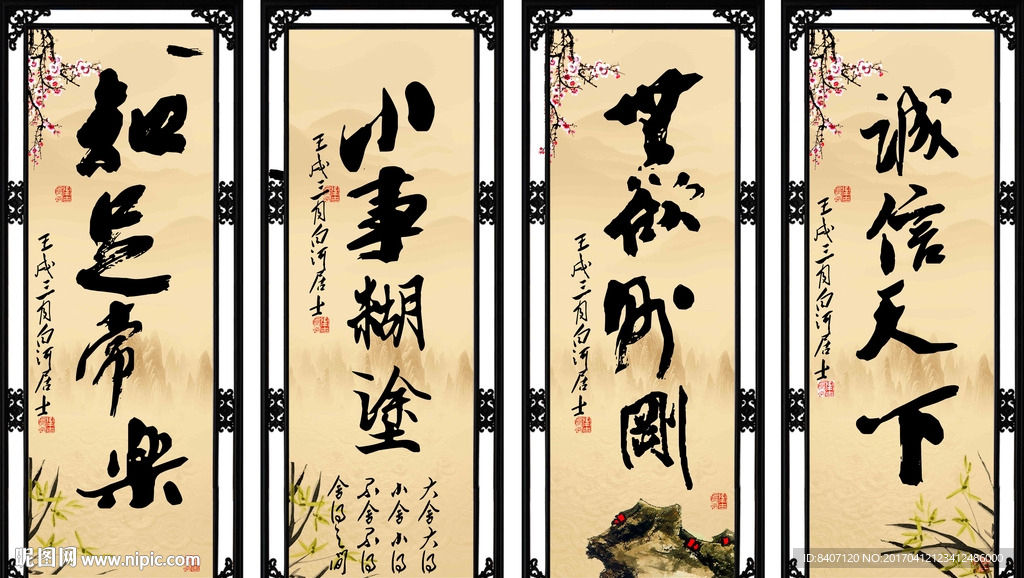 知足常樂
壬戌三月白河居士
小事糊塗
壬戌三月白河居士
大舍大得
小舍小得
不舍不得
舍得之间
無欲則剛
壬戌三月白河居士
誠信天下
壬戌三月白河居士
昵图网 www.nipic.com
ID:8407120 NO:20170412123412486000